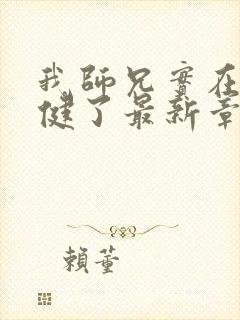 我師兄實在
健了最新章
賴董